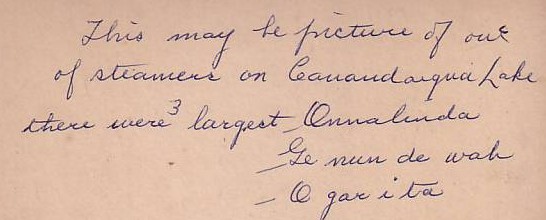 This may be picture of one
of steamers on Canandaigua Lake
there were 3 largest - Onnalinda
- Ge nun de wah
- O gar i ta